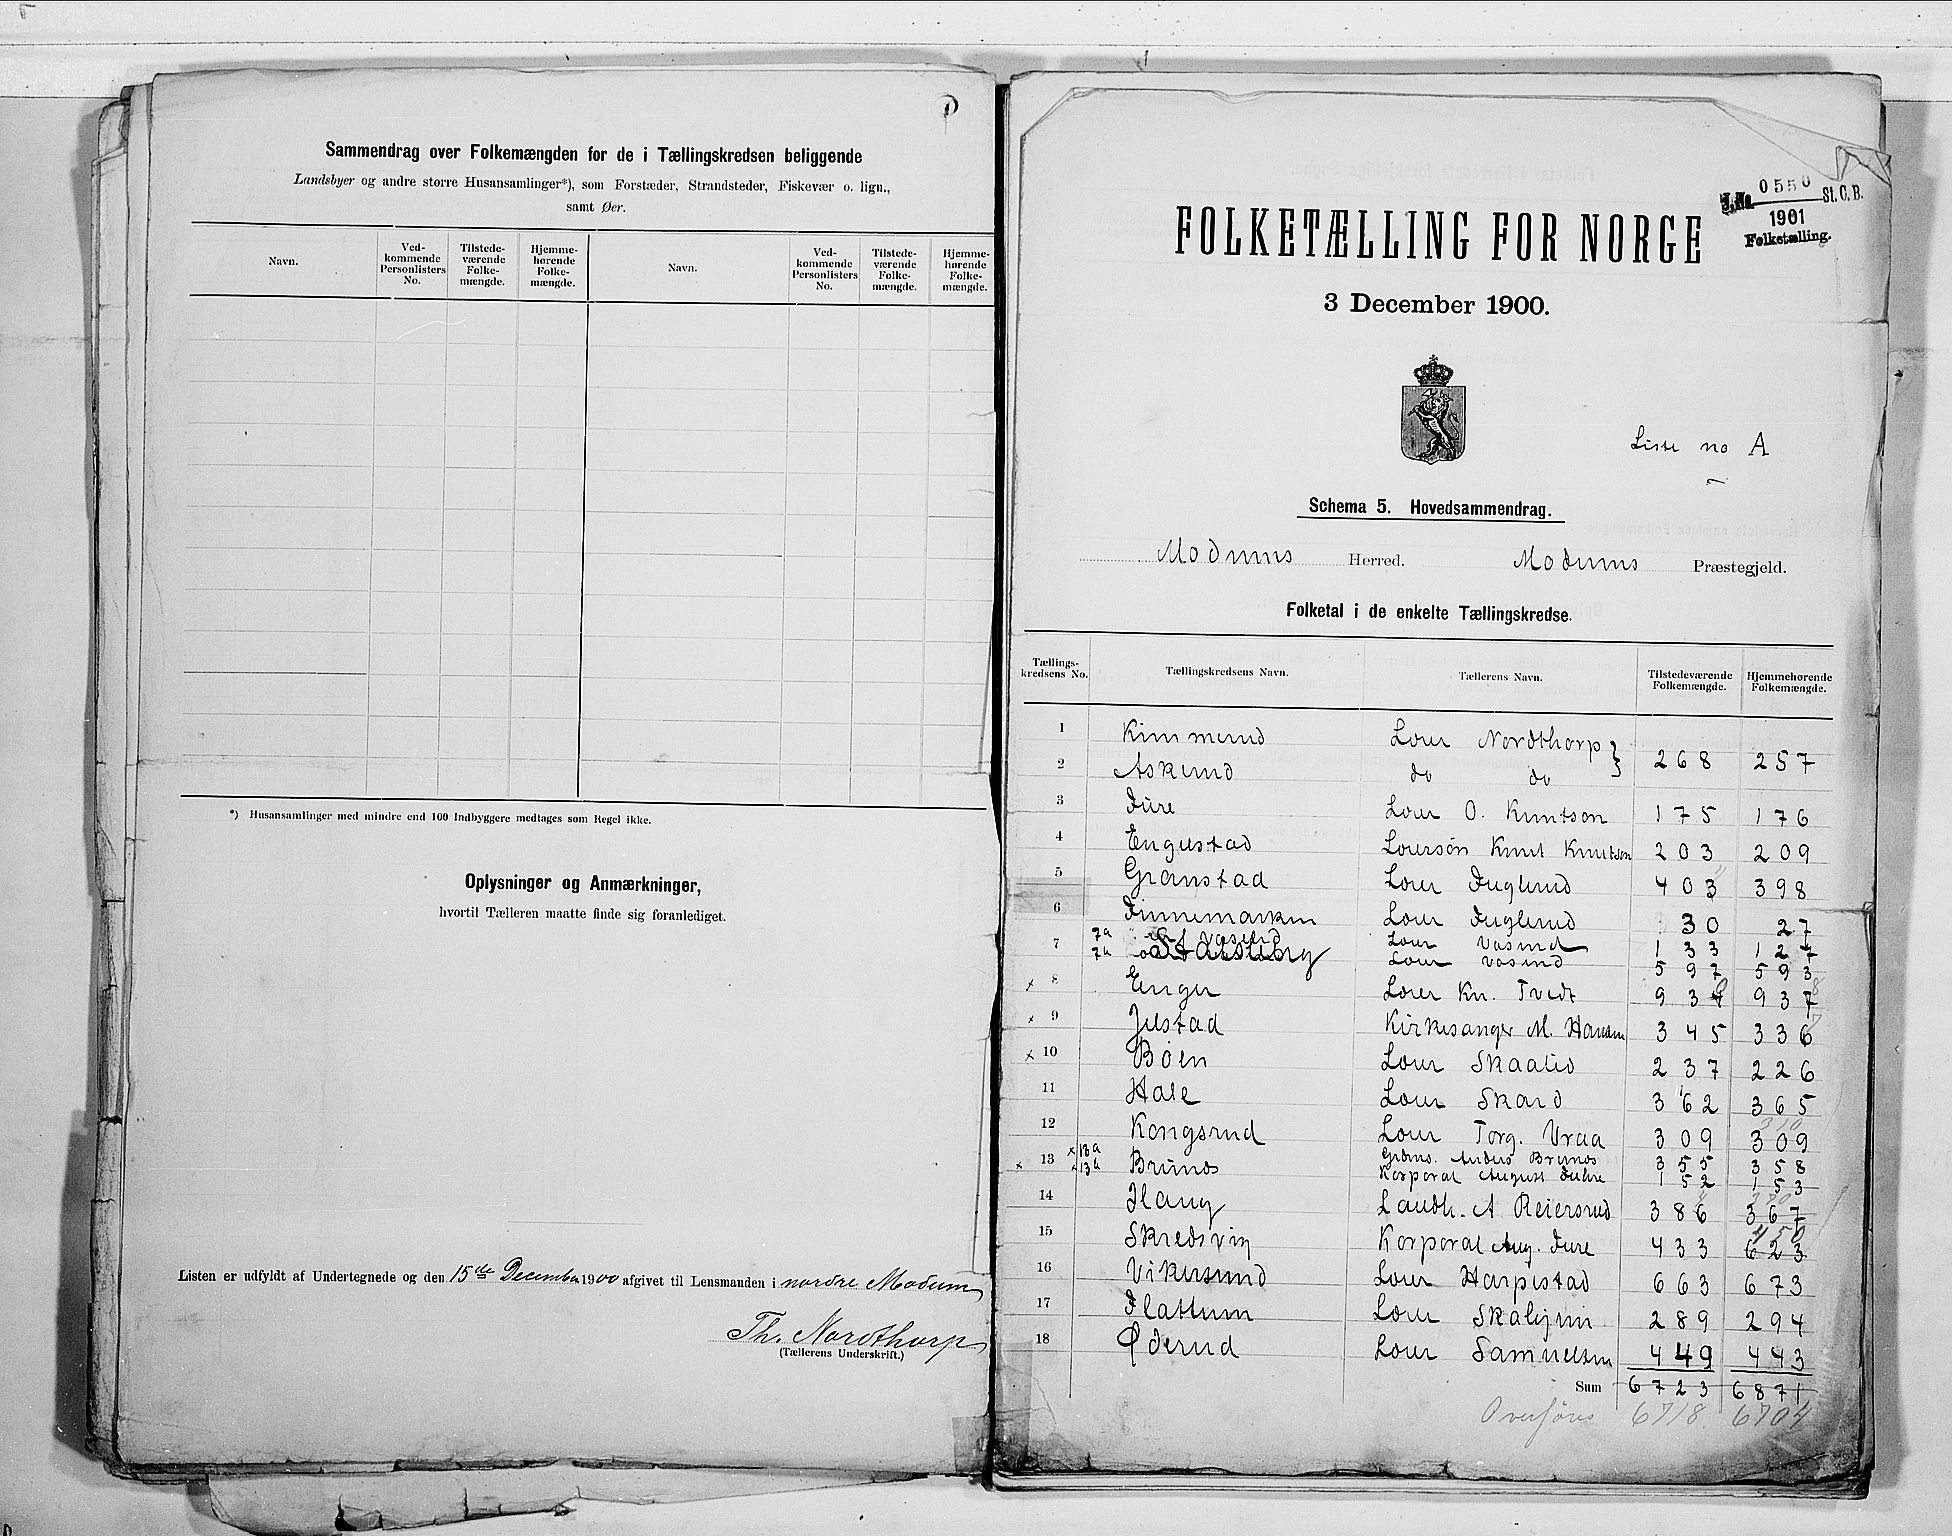 Sammendrag over Folkemængden for de i Tællingskredsen beliggende
Landsbyer og andre større Husansamlinger*), som Forstæder, Strandsteder, Fiskevær o. lign.,
samt Øer.
Navn.
Ved-
kommende
Personlisters
No.
Tilstede-
værende
Folke-
mængde.
Hjemme-
hørende
Folke-
mængde.
Navn.
Ved-
kommende
Personlisters
No.
Tilstede-
værende
Folke-
mængde.
Hjemme-
hørende
Folke-
mængde.
*) Husansamlinger med mindre end 100 Indbyggere medtages som Regel ikke.
Oplysninger og Anmærkninger,
hvortil Tælleren maatte finde sig foranlediget.
Listen er udfyldt af Undertegnede og den 15de December 1900 afgivet til Lensmanden i nordre Modum
Th. Nordthorp
(Tællerens Underskrift.)
J.No. 0550 St. C. B.
1901
Folketælling.
FOLKETÆLLING FOR NORGE
3 December 1900.
Liste no A
Schema 5. Hovedsammendrag.
Modums Herred. Modums Præstegjeld.
Folketal i de enkelte Tællingskredse.
Tællings-
kredsens No.
Tællingskredsens Navn.
Tællerens Navn.
Tilstedeværende
Folkemængde.
Hjemmehørende
Folkemængde.
1 Kimmerud Lærer Nordthorp
2 Askerud do do } 268 257
3 Fure Lærer O. Knutson 175 176
4 Engelstad Lærersøn Knut Knutson 203 209
5 Granstad Lærer Fuglerud 403 398
6 Finnemarken Lærer Fuglerud 30 27
7 7a Lærer Vasend 133 127
7b Stalsberg Lærer Vasend 597 593
x 8 Enger Lærer Kn. Tvedt 93 937
x 9 Gustad Kirkesanger M. Hansen 345 336
x 10 Bøen Lærer Skaalid 237 226
11 Hole Lærer Skard 362 365
12 Kongsrud Lærer Torg. Vraa 309 309
x 13 x 13a Brunes Grdms. Anders Brunes 355 358
x 13b Korporal August Fure 152 153
14 Haug Landh. A Reiersrud 386 367
15 Skredsvig Korporal Aug. Fure 433 623 450
16 Vikersund Lærer Harpestad 663 673
17 Flattum Lærer 289 294
18 Øderud Lærer Samuelsen 449 443
Sum 6723 6871
Overføres 6718 6704